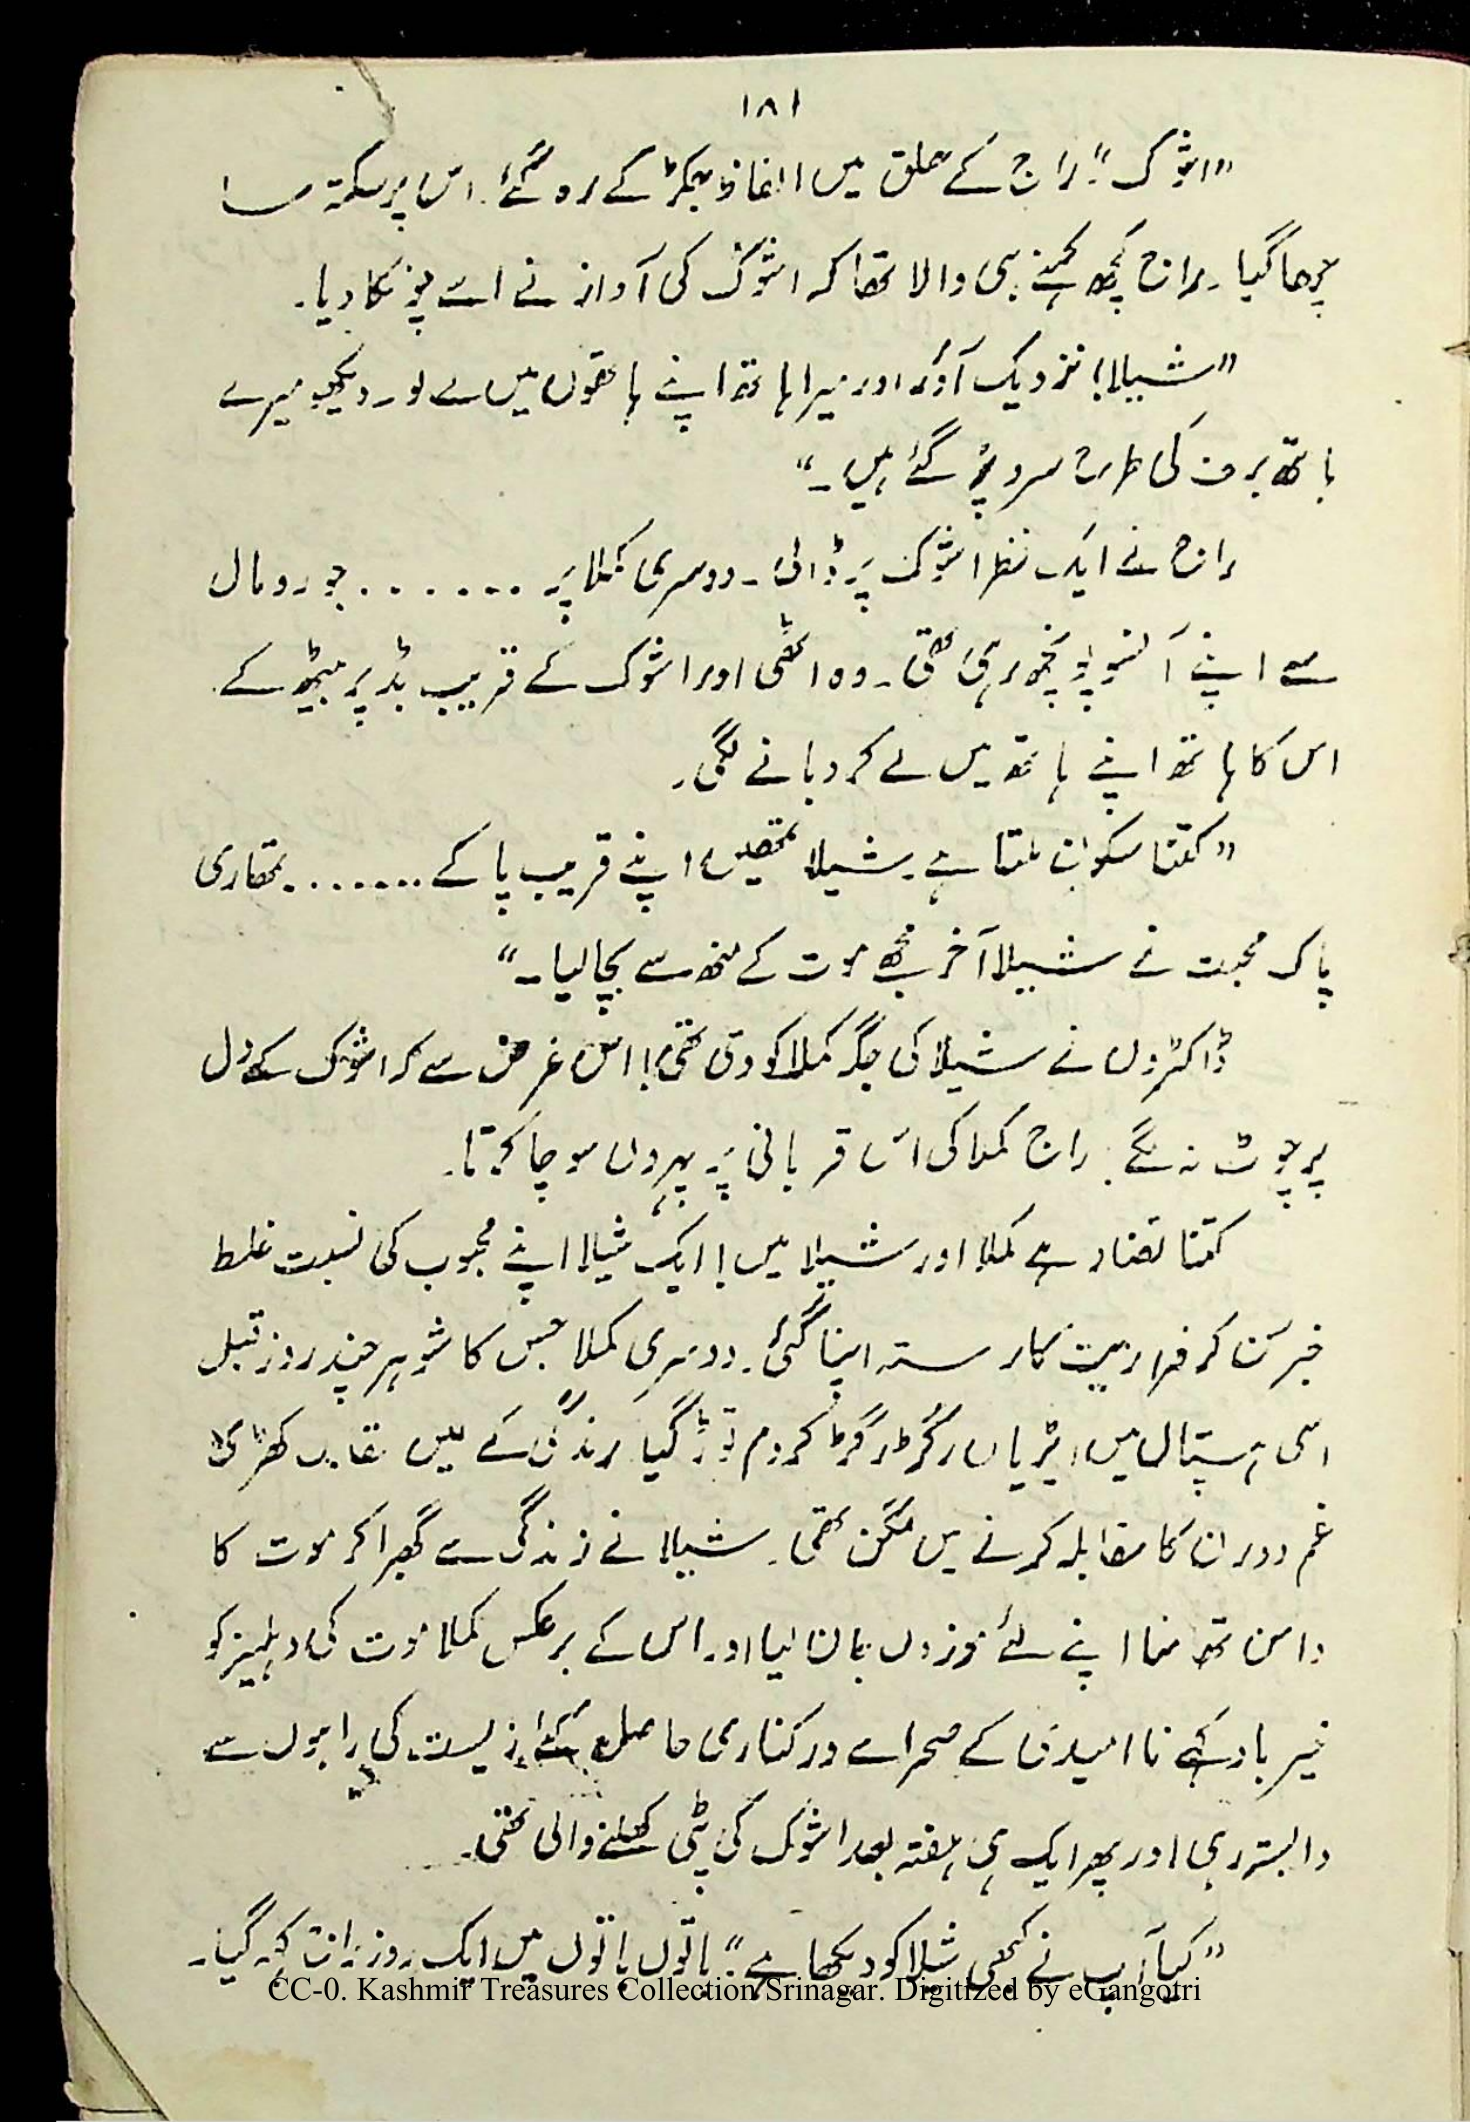 ۱۸۱
”اشوک“! راج کے حلق میں الفاظ جکڑ کے رہ گئے۔ اس پر سکتہ سا
چھا گیا۔ راج کچھ کہنے ہی والا تھا کہ اشوک کی آواز نے اسے چونکا دیا۔
”شیلا! نزدیک آؤ اور میرا ہاتھ اپنے ہاتھوں میں لے لو۔ دیکھو میرے
ہاتھ برف کی طرح سرد پڑ گئے ہیں۔“
راج نے ایک نظر اشوک پر ڈالی۔ دوسری کملا پر ....... جو رومال
سے اپنے آنسو پونچھ رہی تھی۔ وہ اٹھی اور اشوک کے قریب بڈ پر بیٹھ کے
اس کا ہاتھ اپنے ہاتھ میں لے کر دبانے لگی۔
”کتنا سکون ملتا ہے۔ شیلا تمھیں اپنے قریب پا کے ........ تمھاری
پاک محبت نے شیلا آخر مجھے موت کے منھ سے بچا لیا۔“
ڈاکٹروں نے شیلا کی جگہ کملا کو دی تھی! اس غرض سے کہ اشوک کے دل
پر چوٹ نہ لگے۔ راج کملا کی اس قربانی پر پہروں سوچا کرتا۔
کتنا تضاد ہے کملا اور شیلا میں! ایک شیلا اپنے محبوب کی نسبت غلط
خبر سن کر فراریت کا رستہ اپنا گئی۔ دوسری کملا جس کا شوہر چند روز قبل
اسی ہسپتال میں ایڑیاں رگڑ رگڑ کر دم توڑ گیا۔ زندگی کے میں نقاب کھڑی
غم دوران کا مقابلہ کرنے میں مگن تھی۔ شیلا نے زندگی سے گھبرا کر موت کا
دامن تھامنا اپنے لئے موزوں جان لیا اور اس کے برعکس کملا موت کی دہلیز کو
خیرباد کہے ناامیدی کے صحرا سے درکناری حاصل کئے زیست کی راہوں سے
وابستہ رہی اور پھر ایک ہی ہفتہ بعد اشوک کی پٹی کھلنے والی تھی۔
”کیا آپ نے کبھی شیلا کو دیکھا ہے“؟ باتوں باتوں میں ایک روز راج کہہ گیا۔
CC-0. Kashmir Treasures Collection Srinagar. Digitized by eGangotri